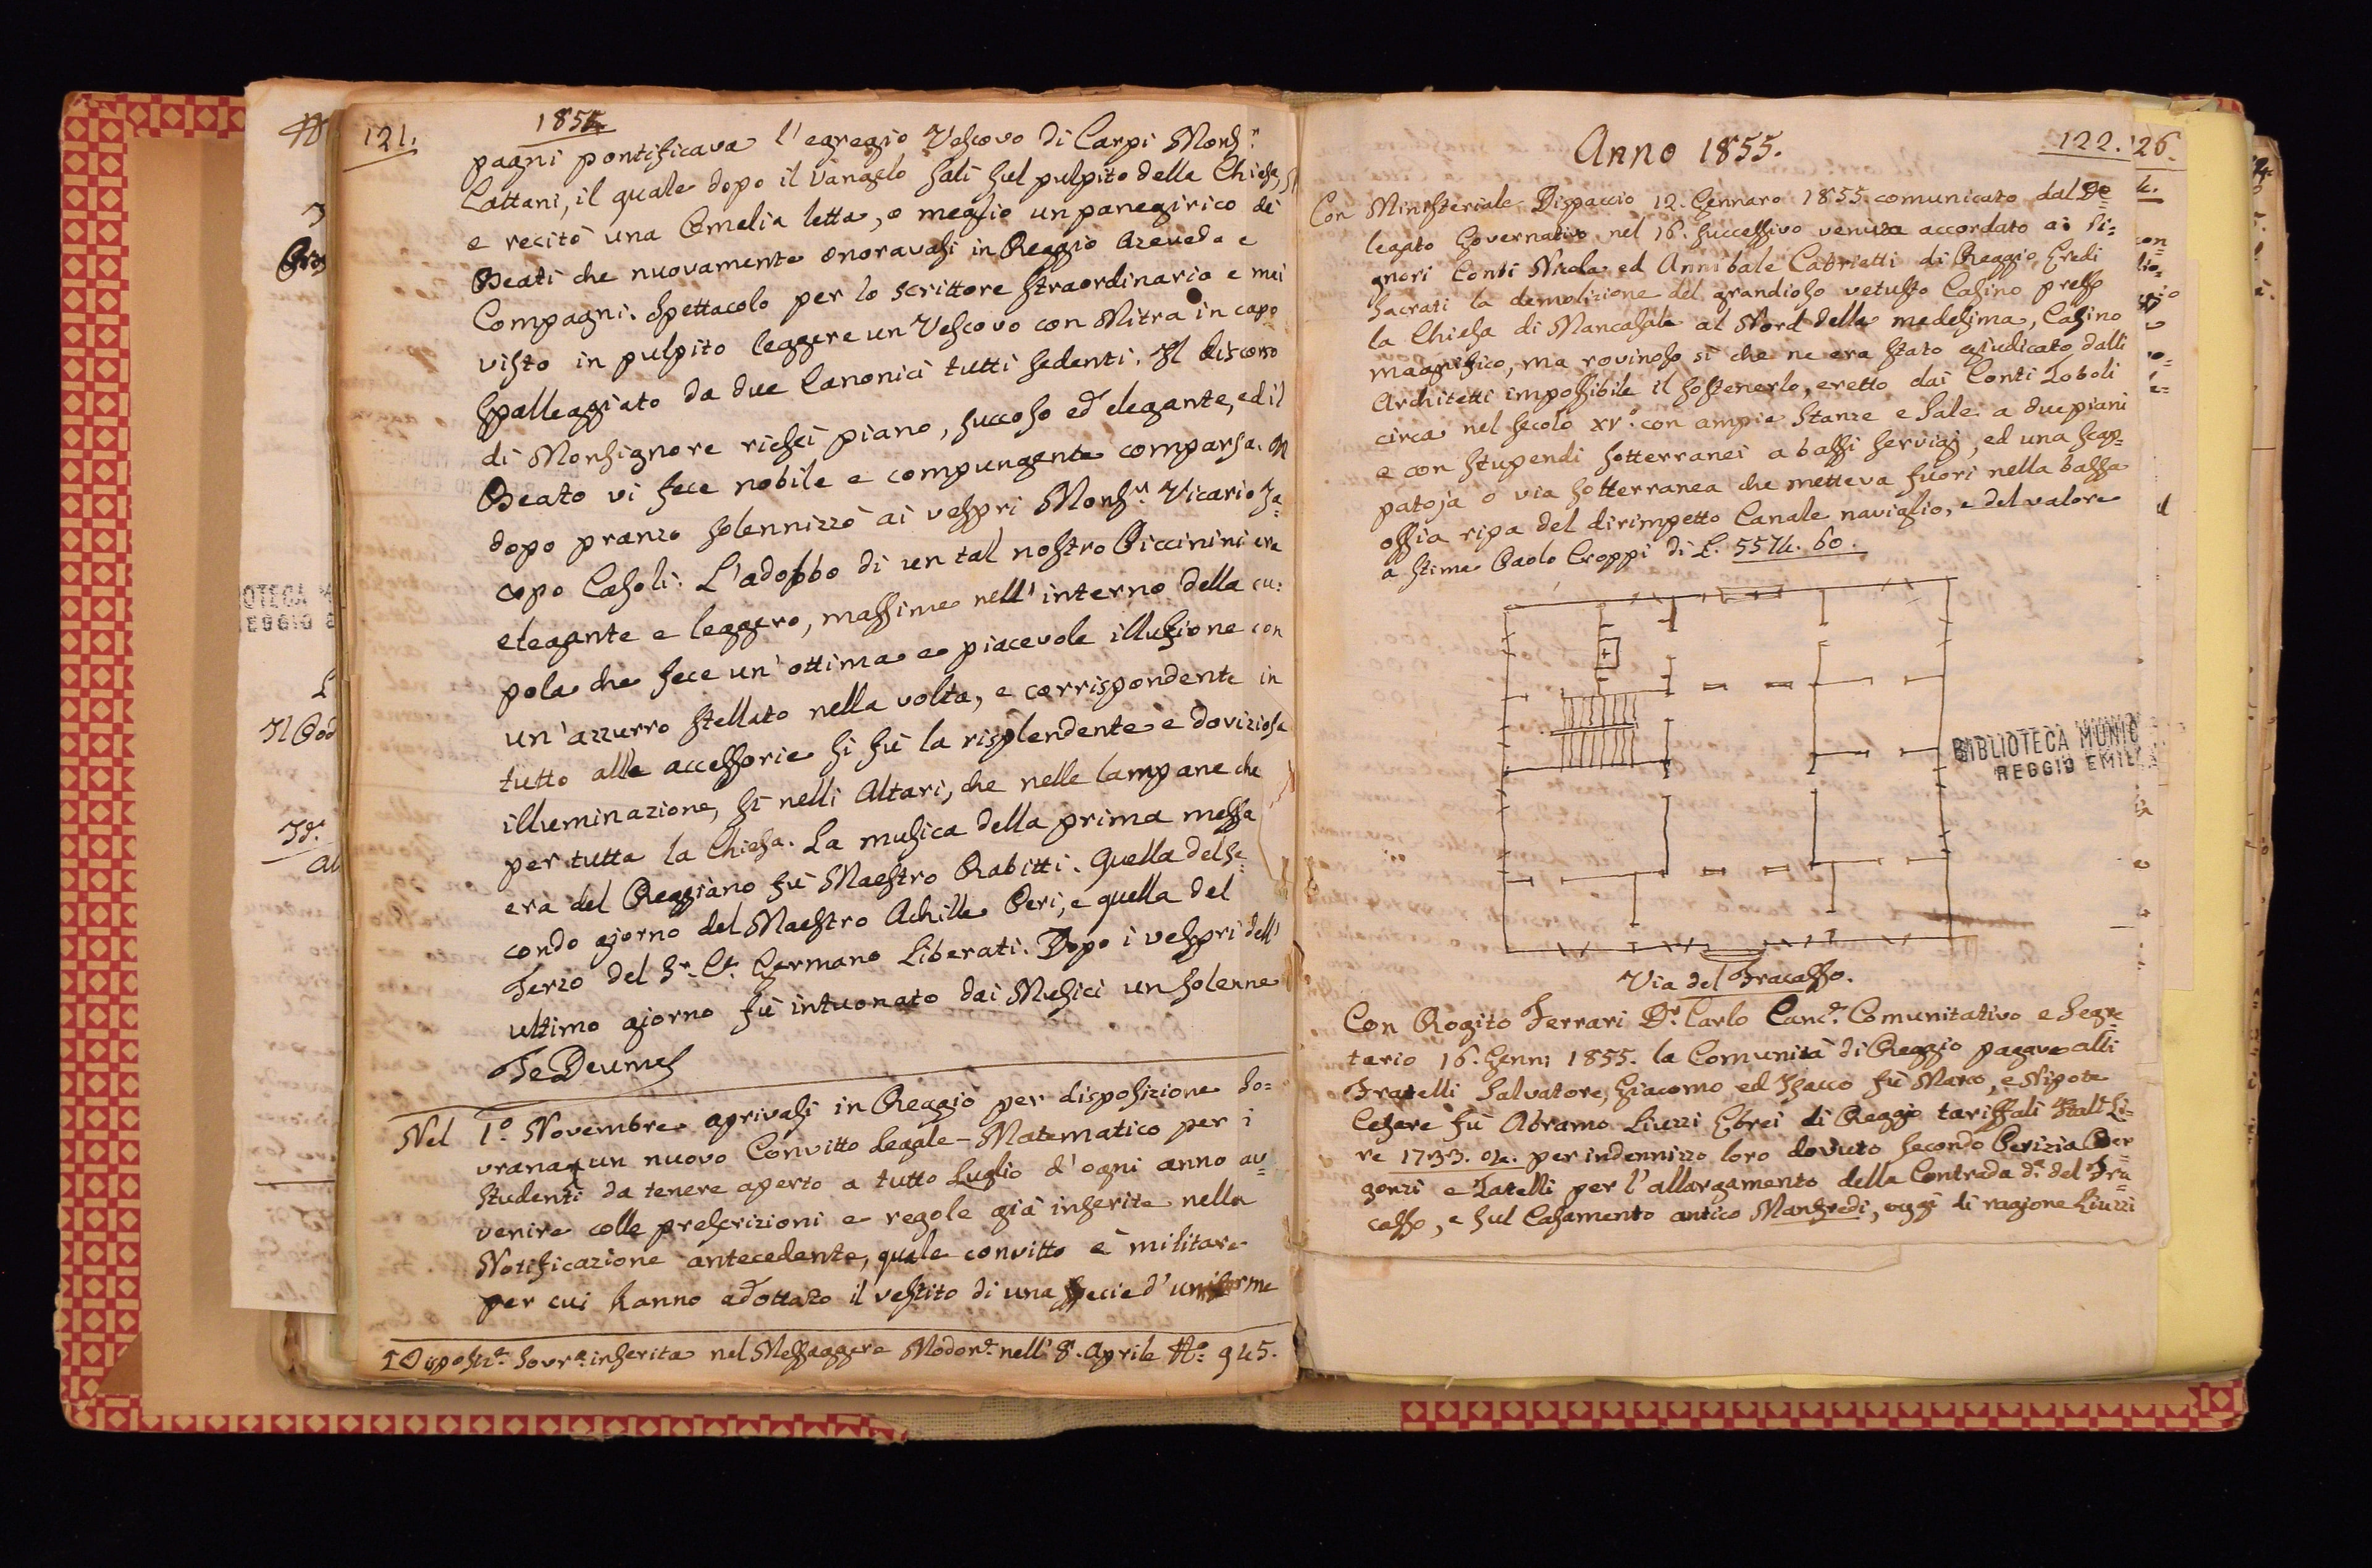 121.
1854
pagni pontificava l'egregio Vescovo di Carpi Monsr.
Cattani, il quale dopo il Vangelo salì sul pulpito della Chiesa,
e recitò una Omelia letta, o meglio un panegirico dei
Beati che nuovamente onoravasi in Reggio Azeveda e
Compagni. Spettacolo per lo scrittore straordinario e mai
visto in pulpito leggere un Vescovo con Mitra in capo
spalleggiato da due Canonici tutti sedenti. Il discorso
di Monsignore riescì piano, succoso ed elegante, ed il
Beato vi fece nobile e compungente comparsa.
dopo pranzo solennizzò ai vespri Monsr. Vicario Ja=
copo Casoli. L'adobbo di un tal nostro Piccinini era
elegante e leggero, massime nell'interno della cu=
pola che fece un'ottima e piacevole illusione con
un'azzurro stellato nella volta, e corrispondente in
tutto alle accessorie si fù la risplendente e doviziosa
illuminazione, sì nelli Altari, che nelle lampane che
per tutta la Chiesa. La musica della prima messa
era del Reggiano fù Maestro Rabitti. Quella del se=
condo giorno del Maestro Achille Peri, e quella del
Terzo del Sr. Ct. Germano Liberati. Dopo i vespri dell'
ultimo giorno fù intuonato dai Musici un solenne
TeDeum
Nel 1.° Novembre aprivasi in Reggio per disposizione So=
vrana un nuovo Convitto Legale-Matematico per i
Studenti da tenere aperto a tutto Luglio d'ogni anno av=
venire colle prescrizioni e regole già inserite nella
Notificazione antecedente, quale convitto è militare
per cui hanno adottato il vestito di una specie d'uniforme
Disposize. Sovra. inserita nel Messaggere Modone. nell' 8. Aprile N° 945.
Anno 1855.
122.
26.
Con Ministeriale Dispaccio 12. Gennaro 1855 comunicato dal De=
legato Governativo nel 16. successivo veniva accordato ai Si=
gnori Conti Nicola ed Annibale Cabrietti di Reggio Eredi
Sacrati la demolizione del grandioso vetusto Casino presso
la Chiesa di Mancasale al Nord della medesima, Casino
magnifico, ma rovinoso sì che ne era stato giudicato dalli
Architetti impossibile il sostenerlo, eretto dai Conti Toboli
circa nel secolo XV.° con ampie stanze e sale a due piani
e con stupendi sotterranei a bassi servigj, ed una scap=
patoja o via sotterranea che metteva fuori nella bassa
ossia ripa del dirimpetto Canale naviglio, e del valore
a stima Paolo Croppi di L. 5574. 60.
BIBLIOTECA MUNIC
REGGIO EMIL
Via del Fracasso.
Con Rogito Ferrari Dr. Carlo Cance. Comunitativo e Segre
tario 16. Genn. 1855. la Comunità di Reggio pagava alli
Fratelli Salvatore, Giacomo ed Isacco fù Marco, e Nipote
Cesare fù Abramo Liuzzi Ebrei di Reggio tariffali Itale Li=
re 1733. 04. per indennizzo loro dovuto secondo Perizia Ber=
gonzi e Tatelli per l'allargamento della Contrada da. del Fra=
casso, e sul Casamento antico Manfredi, oggi di ragione Liuzzi
OTECA M
EGGIO E
Il Pod